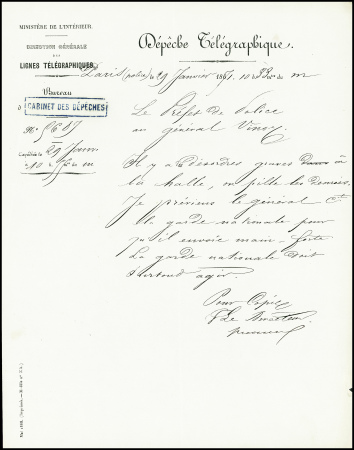 MINISTÈRE DE L'INTÉRIEUR.
DIRECTION GÉNÉRALE
DES
LIGNES TÉLÉGRAPHIQUES.
Bureau
CABINET DES DÉPÊCHES
N° 5687
Expédiée le 29 Janv.
Dépêche Télégraphique.
Paris (police) le 29 Janvier 1871. 10 h 33 m
Le Préfet de Police
au général Vinoy.
Il y a désordres graves dans
la halle, on pille les denrées.
Je préviens le général Ct
la garde nationale pour
qu'il envoie main-forte
La garde nationale doit
surtout agir.
Pour Copie
Le Directeur